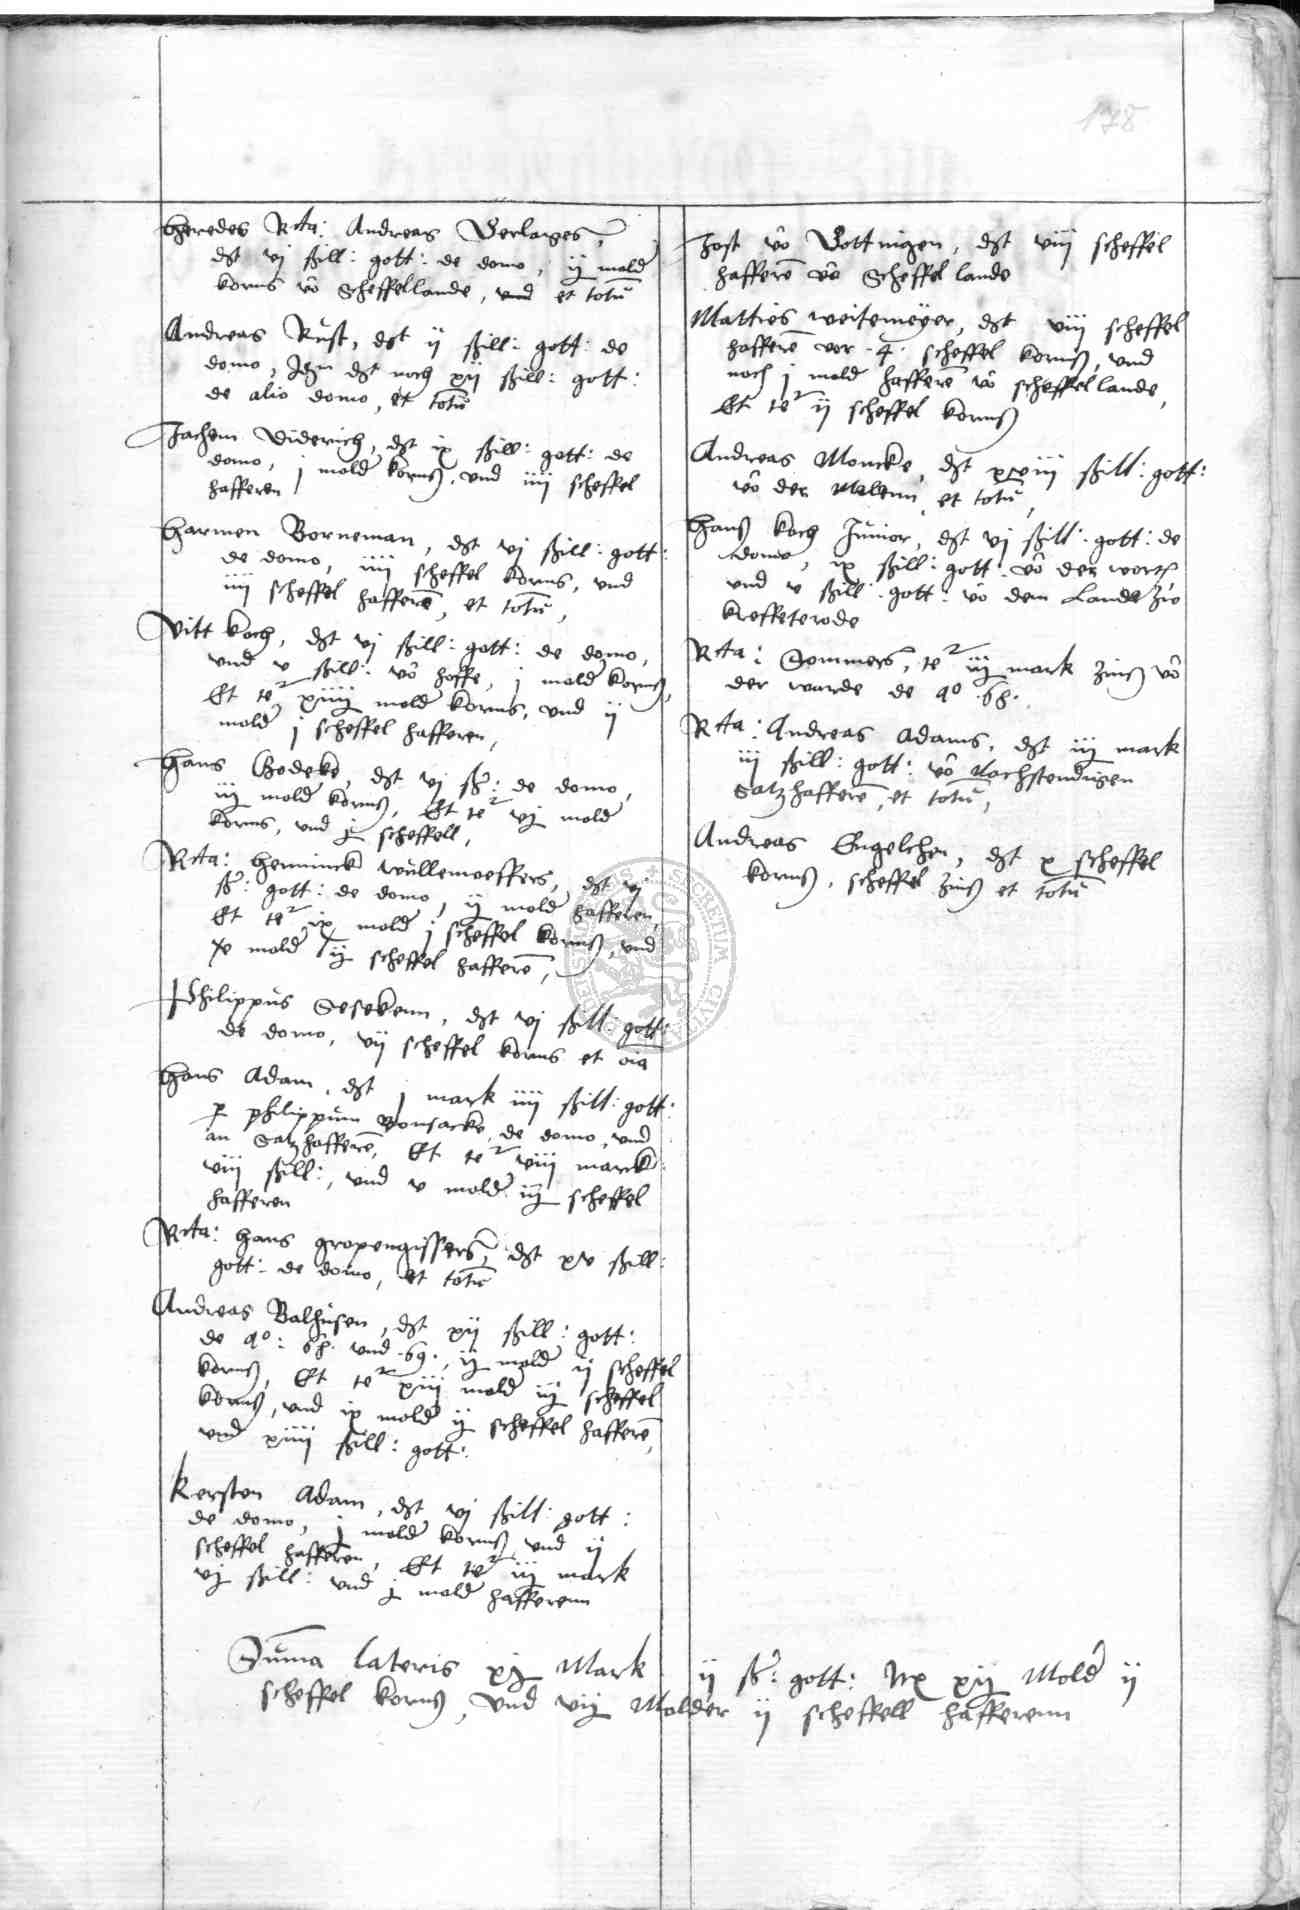 178
Heredes Rcta: Andreas Gerlages,
dt vj ßill: gott: de domo, ij mald
korns vō Scheffellande, vnd et totū
Andreas Rust, dt ij ßill: gott: de
domo, Jtzm dt noch xij ßill: gott:
de alio domo, et totū
Jachem Diderich, dt ix ßill: gott: de
domo, j mald korns, vnd iiij scheffel
hafferen
Harmen Borneman, dt vj ßill: gott:
de domo, iiij scheffel korns, vnd
iiij scheffel hafferē, et totū,
Vitt koch, dt vj ßill: gott: de domo,
vnd v ßill: vō hoffe, j mald korns,
Et te² xiiij mald korns, vnd ij
mald j scheffel hafferen,
Hans Godeke, dt vj ß: de domo,
iij mald korns, Et te² vj mald
korns, vnd j scheffell,
Rcta: Henninck wullenweffers, dt vj
ß: gott: de domo, ij mald hafferen,
Et te² ix mald j scheffel korns, vnd
x mald ij scheffel hafferē,
Philippus Gesekenn, dt vj ßill: gott:
de domo, vij scheffel korns et oīa
Hans Adam, dt j mark iiij ßill: gott:
p philippum Bonsacke, de domo, vnd
an Satzhafferē, Et te² viij marck
viij ßill:, vnd v mald iij scheffel
hafferen
Rcta: Hans gropengissers, dt xv ßill:
gott: de domo, et totū
Andreas Balhusen, dt xij ßill: gott:
de aº: 68. vnd .69., ij mald ij scheffel
korns, Et te² xiij mald iij scheffel
korns, vnd ix mald ij scheffel hafferē,
vnd xiiij ßill: gott:
Kersten Adam, dt vj ßill: gott:
de domo, j mald korns vnd ij
scheffel hafferen, Et te² iij mark
vj ßill: vnd j mald hafferenn
Jost vō Gottingen, dt viij scheffel
hafferē vō Scheffel lande
Matties weitemeyer, dt viij scheffel
hafferē vor .4. scheffel korns, vnd
noch j mald hafferē vō scheffellande,
Et te² ij scheffel korns
Andreas Moncke, dt xxiij ßill: gott:
vō der Molenn, et totū,
Hans koch Junior, dt vj ßill: gott: de
domo, ix ßill: gott: vō der wort,
vnd v ßill: gott: vō dem Lande zu
kreffeterode
Rcta: Sommers, te² iij mark zins vō
der wurde de aº .68.
Rcta: Andreas Adams, dt iij mark
iij ßill: gott: vō Nachstendigen
Satzhafferē, et totū,
Andreas Engelchen, dt x scheffel
korns, scheffel zins et totū
Suma lateris xj Mark ij ß: gott: xij Mold ij
scheffel korns, vnd vij Molder ij scheffell hafferenn